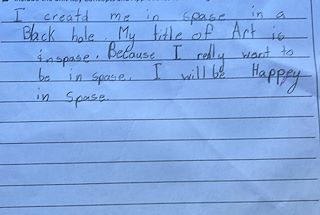 I creatd me in spase in a
Black hole. My title of Art is
inspase. Because I relly want to
be in spase. I will be Happey
in spase.